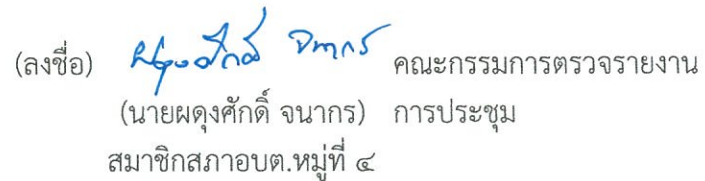 (ลงชื่อ) ผดุงศักดิ์ จนากร คณะกรรมการตรวจรายงาน
(นายผดุงศักดิ์ จนากร) การประชุม
สมาชิกสภาอบต.หมู่ที่ ๔